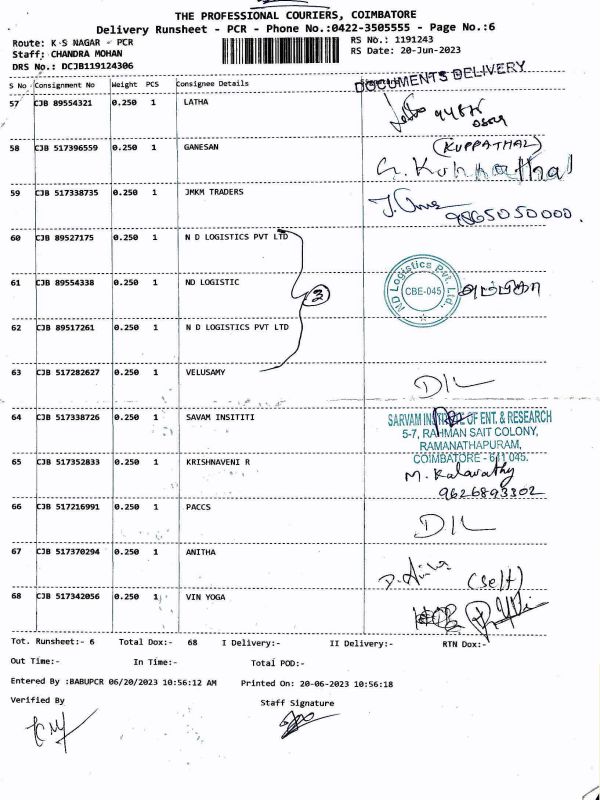 THE PROFESSIONAL COURIERS, COIMBATORE
Delivery Runsheet - PCR - Phone No.:0422-3505555 - Page No.:6
Route: K S NAGAR - PCR
RS No.: 1191243
Staff: CHANDRA MOHAN
RS Date: 20-Jun-2023
DRS No.: DCJB119124306
DOCUMENTS DELIVERY
S No Consignment No Weight PCS Consignee Details
57 CJB 89554321 0.250 1 LATHA
58 CJB 517396559 0.250 1 GANESAN (KUPPATHAL)
59 CJB 517338735 0.250 1 JMKM TRADERS
9865050000.
60 CJB 89527175 0.250 1 N D LOGISTICS PVT LTD
61 CJB 89554338 0.250 1 ND LOGISTIC
3
ND Logistics Pvt. Ltd.,
CBE-045
62 CJB 89517261 0.250 1 N D LOGISTICS PVT LTD
63 CJB 517282627 0.250 1 VELUSAMY D/L
64 CJB 517338726 0.250 1 SAVAM INSITITI
SARVAM INSTITUTE OF ENT. & RESEARCH
5-7, RAHMAN SAIT COLONY,
RAMANATHAPURAM,
COIMBATORE - 641 045.
65 CJB 517352833 0.250 1 KRISHNAVENI R
M. Kalavathy
9626893302
66 CJB 517216991 0.250 1 PACCS D/L
67 CJB 517370294 0.250 1 ANITHA
(Self)
68 CJB 517342056 0.250 1 VIN YOGA
Tot. Runsheet:- 6 Total Dox:- 68 I Delivery:- II Delivery:- RTN Dox:-
Out Time:- In Time:- Total POD:-
Entered By :BABUPCR 06/20/2023 10:56:12 AM Printed On: 20-06-2023 10:56:18
Verified By Staff Signature